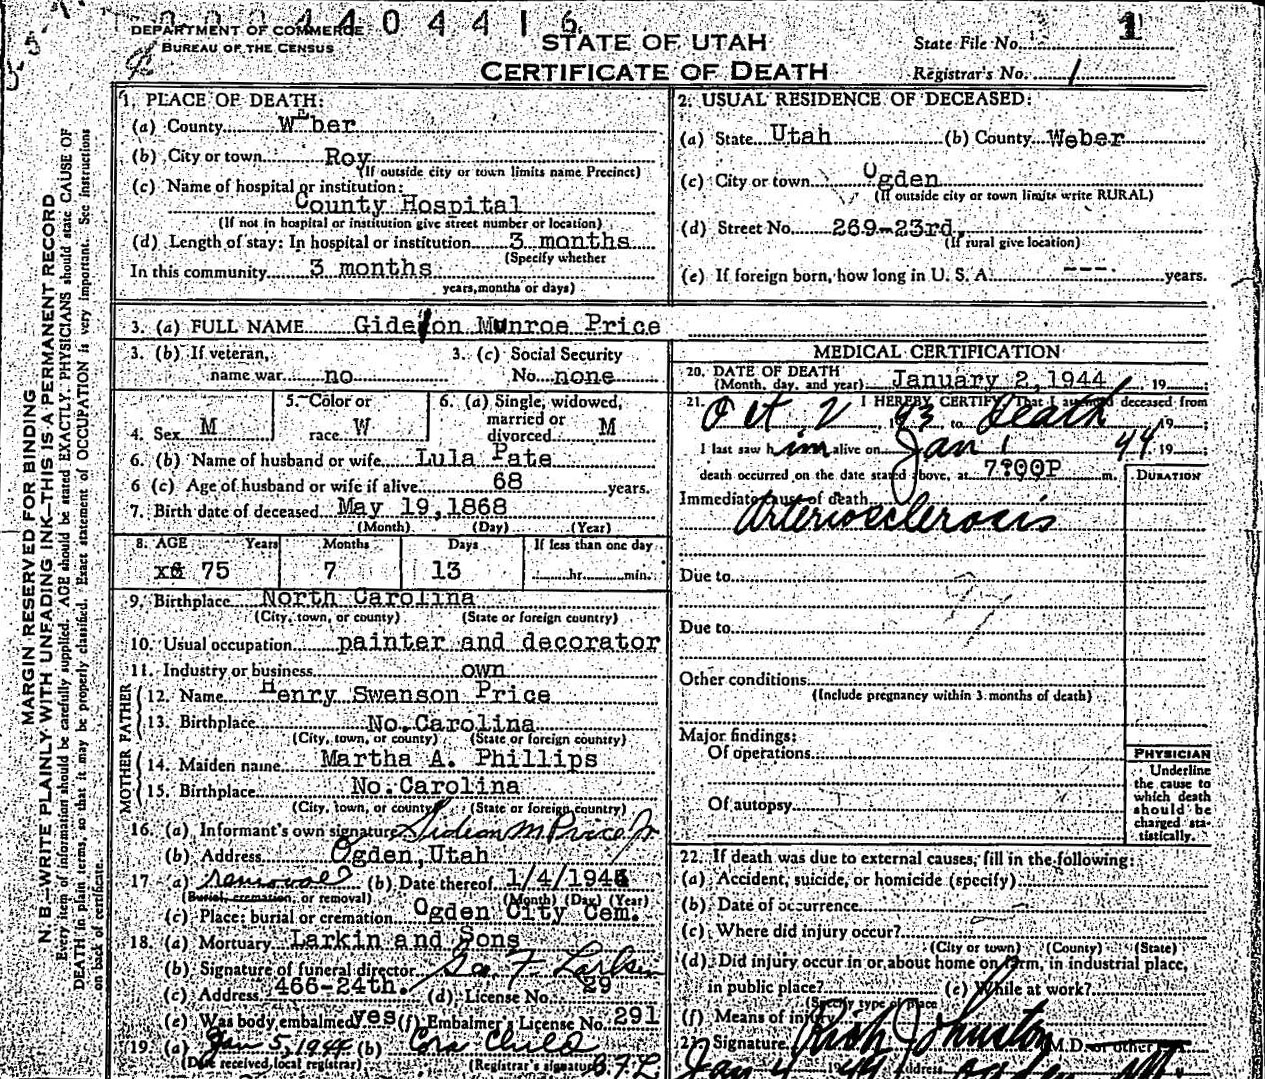 0004404416
DEPARTMENT OF COMMERCE
BUREAU OF THE CENSUS
STATE OF UTAH
CERTIFICATE OF DEATH
State File No. 1
Registrar's No. 1
MARGIN RESERVED FOR BINDING
N. B.—WRITE PLAINLY WITH UNFADING INK—THIS IS A PERMANENT RECORD
Every item of information should be carefully supplied. AGE should be stated EXACTLY. PHYSICIANS should state CAUSE OF
DEATH in plain terms, so that it may be properly classified. Exact statement of OCCUPATION is very important. See instructions
on back of certificate.
1. PLACE OF DEATH:
(a) County Weber
(b) City or town Roy
(If outside city or town limits name Precinct)
(c) Name of hospital or institution:
County Hospital
(If not in hospital or institution give street number or location)
(d) Length of stay: In hospital or institution 3 months
(Specify whether
In this community 3 months
years, months or days)
2. USUAL RESIDENCE OF DECEASED:
(a) State Utah (b) County Weber
(c) City or town Ogden
(If outside city or town limits write RURAL)
(d) Street No. 269-23rd.
(If rural give location)
(e) If foreign born, how long in U. S. A. --- years.
3. (a) FULL NAME Gideon Munroe Price
3. (b) If veteran, 3. (c) Social Security
name war no No. none
4. Sex M
5. Color or
race W
6. (a) Single, widowed,
married or
divorced M
6. (b) Name of husband or wife Lula Pate
6 (c) Age of husband or wife if alive 68 years.
7. Birth date of deceased May 19, 1868
(Month) (Day) (Year)
8. AGE Years Months Days If less than one day
75 7 13 hr. min.
9. Birthplace North Carolina
(City, town, or county) (State or foreign country)
10. Usual occupation painter and decorator
11. Industry or business own
FATHER
12. Name Henry Swenson Price
13. Birthplace No. Carolina
(City, town, or county) (State or foreign country)
MOTHER
14. Maiden name Martha A. Phillips
15. Birthplace No. Carolina
(City, town, or county) (State or foreign country)
16. (a) Informant's own signature Gideon M Price Jr
(b) Address Ogden, Utah
17 (a) removal (b) Date thereof 1/4/1944
(Burial, cremation, or removal) (Month) (Day) (Year)
(c) Place: burial or cremation Ogden City Cem.
18. (a) Mortuary Larkin and Sons
(b) Signature of funeral director Geo. F Larkin
(c) Address 466-24th. (d) License No. 29
(e) Was body embalmed yes (f) Embalmer's License No. 291
19 (a) Jan 5, 1944 (b) Cora Child
(Date received local registrar) (Registrar's signature) B.F.L
MEDICAL CERTIFICATION
20. DATE OF DEATH
(Month, day, and year) January 2, 1944, 19
21. I HEREBY CERTIFY That I attended deceased from
Oct 2 1943 to death, 19
I last saw him alive on Jan 1 44 19
death occurred on the date stated above, at 7:00P m.
DURATION
Immediate cause of death
Arteriosclerosis
Due to
97
Due to
Other conditions
(Include pregnancy within 3 months of death)
Major findings:
Of operations
Of autopsy
PHYSICIAN
Underline
the cause to
which death
should be
charged sta-
tistically.
22. If death was due to external causes, fill in the following:
(a) Accident, suicide, or homicide (specify)
(b) Date of occurrence
(c) Where did injury occur?
(City or town) (County) (State)
(d) Did injury occur in or about home on farm, in industrial place,
in public place? (e) While at work?
(Specify type of place
(f) Means of injury
Signature Rich Johnston M.D. or other
Jan 4 1944 Address Ogden Ut.